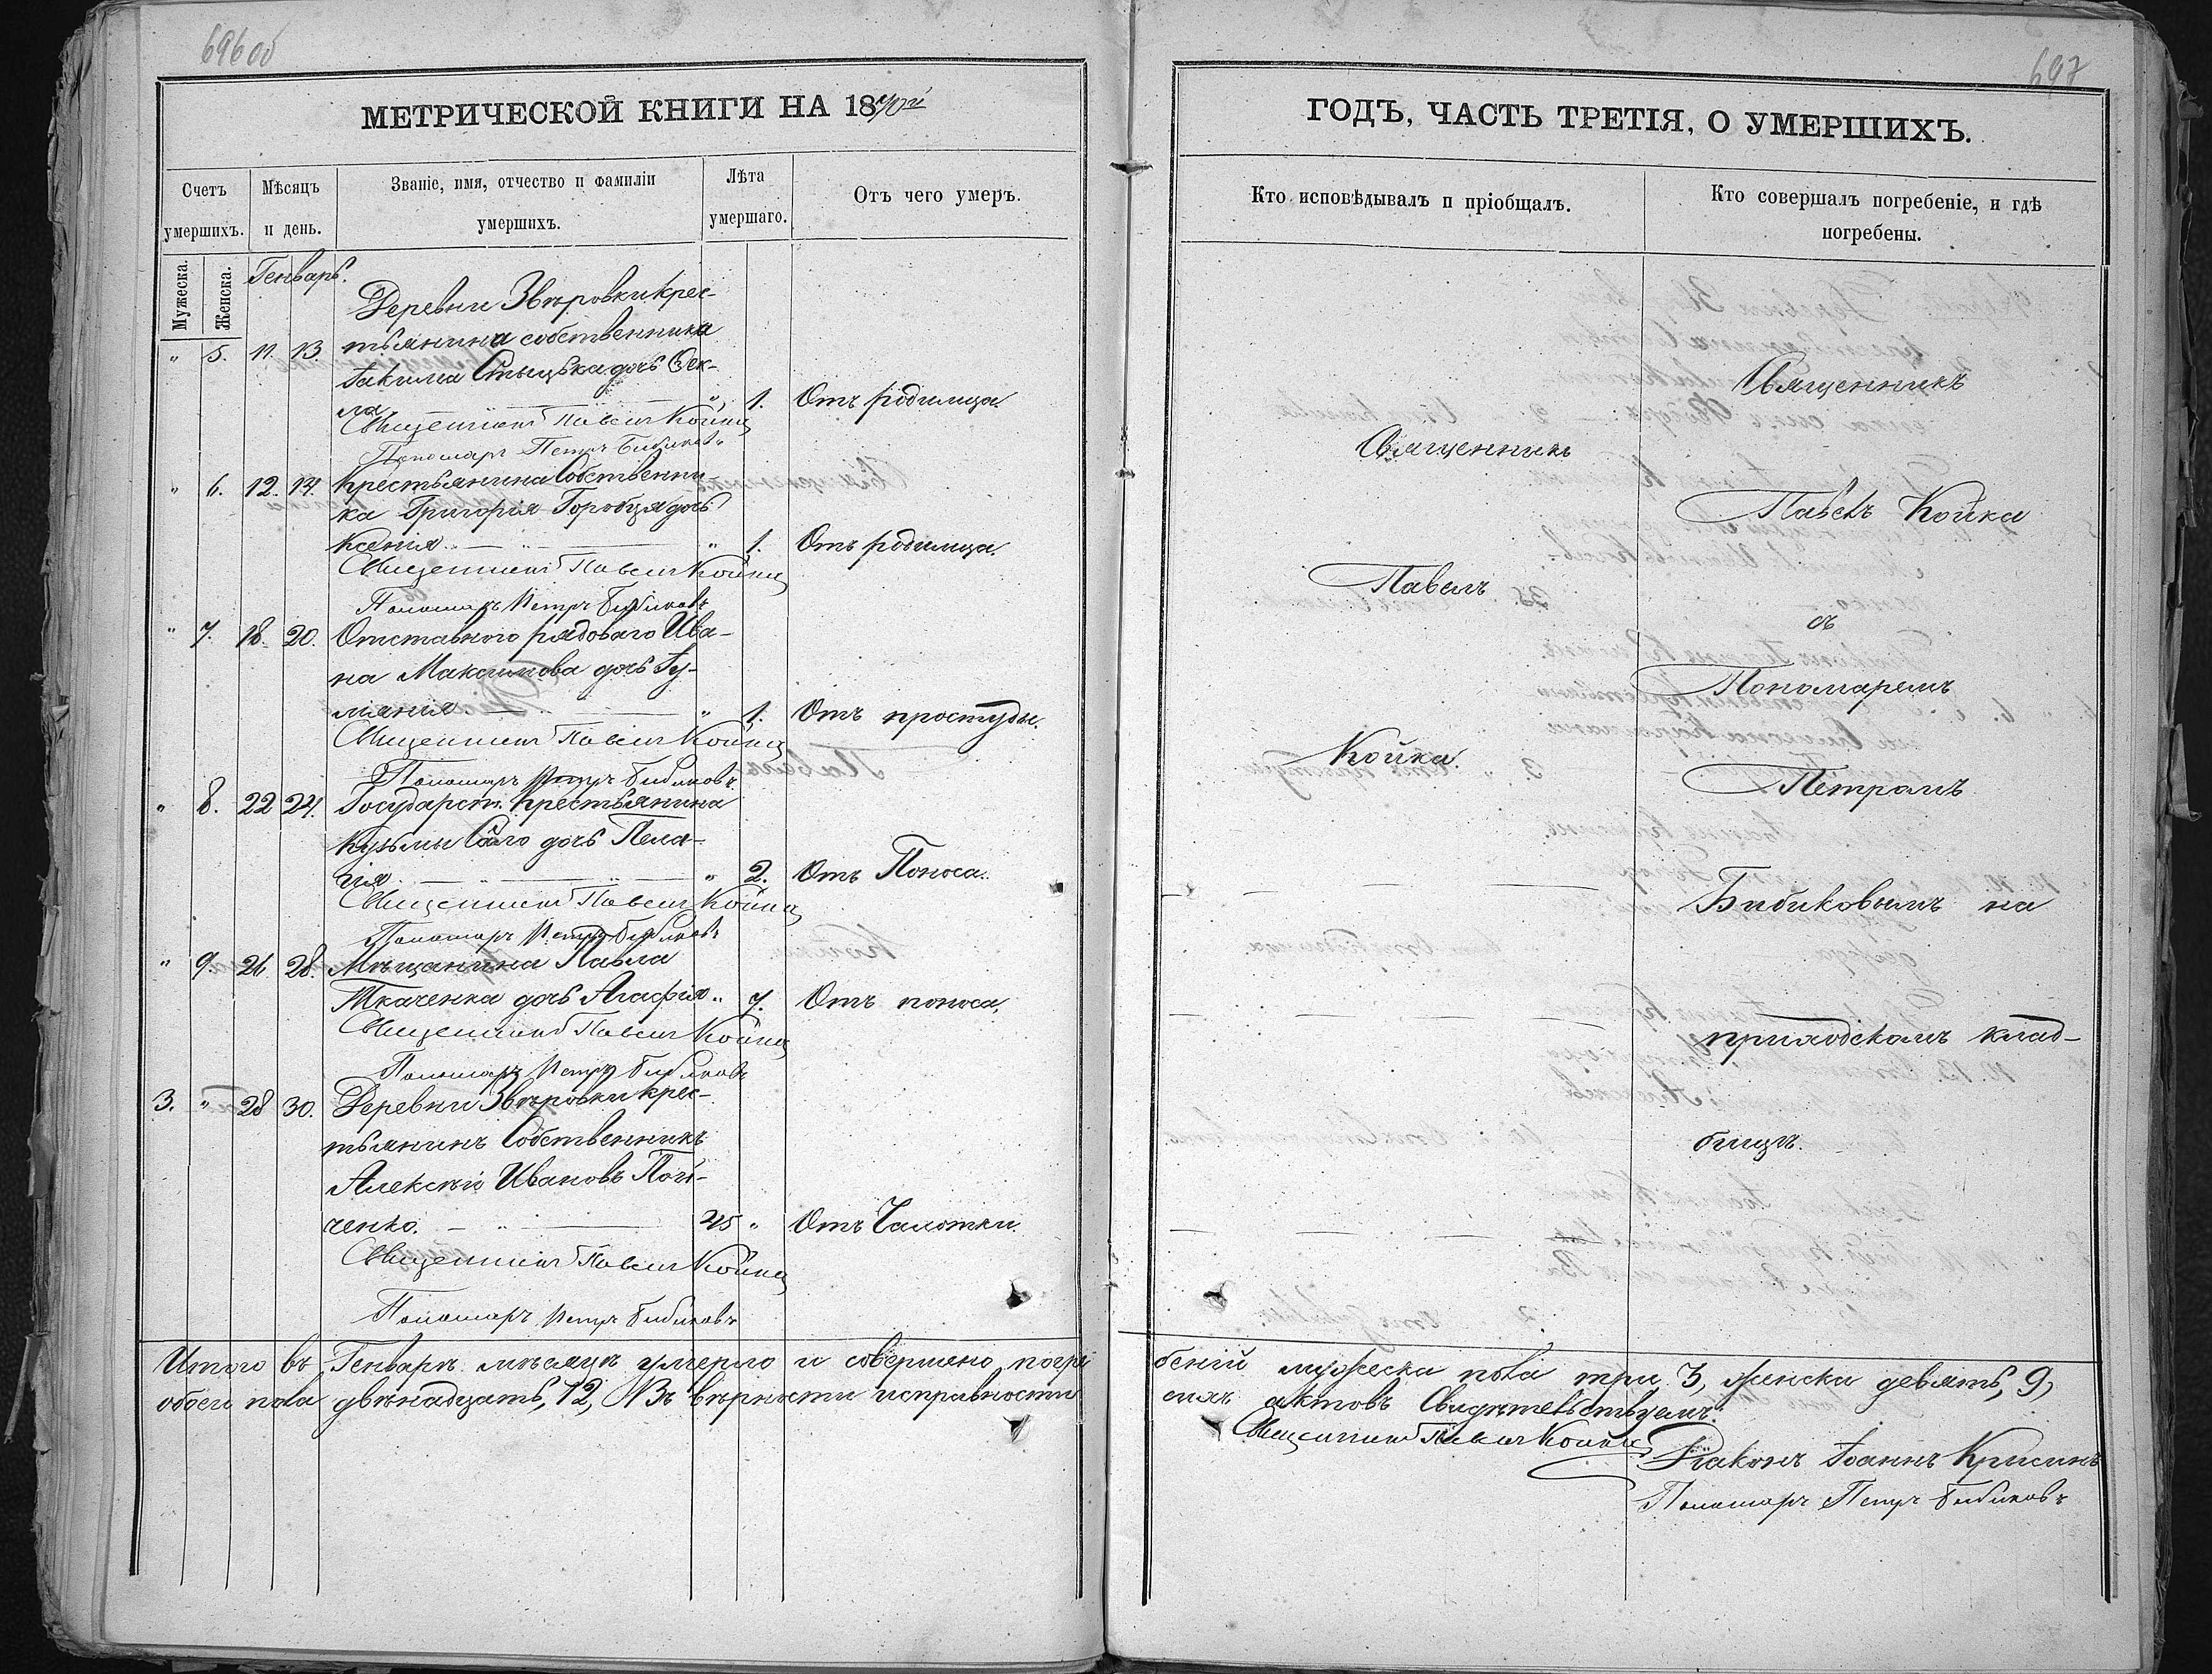 696 об
МЕТРИЧЕСКОЙ КНИГИ НА 1870й
Счетъ умершихъ.
Мужеска.
Женска.
Мѣсяцъ и день.
Званіе, имя, отчество и фамиліи умершихъ.
Лѣта умершаго.
Отъ чего умеръ.
Генварь.
Деревни Звѣровки крес-
" 5. 11. 13. тьянина собственника
Іакима дочь Ѳек-
ла " 1. Отъ родимца.
Священникъ Павелъ Койка
Пономарь Петръ Бибиковъ
" 6. 12. 14. Крестьянина Собственни-
ка Григорія Горобця дочь
Ксенія " 1. Отъ родимца.
Священникъ Павелъ Койка
Пономарь Петръ Бибиковъ
" 7. 18. 20. Отставного рядоваго Ива-
на Максимова дочь Іу-
лианія " 1. Отъ простуды.
Священникъ Павелъ Койка
Пономарь Петръ Бибиковъ
" 8. 22 24. Государст. Крестьянина
Кузьмы дочь Пела-
гія " 2. Отъ Поноса.
Священникъ Павелъ Койка
Пономарь Петръ Бибиковъ
" 9. 26 28. Мѣщанина Павла
Ткаченка дочь Агафія " 7. Отъ поноса,
Священникъ Павелъ Койка
Пономарь Петръ Бибиковъ
3. " 28 30. Деревни Звѣровки крес-
тьянинъ Собственникъ
Алексѣй Ивановъ
ченко. 45 " Отъ Чахотки
Священникъ Павелъ Койка
Пономарь Петръ Бибиковъ
Итого въ Генварѣ мѣсяцѣ умерло и совершено погре
обоего пола двѣнадцать, 12, Въ вѣрности исправности
697
ГОДЪ, ЧАСТЬ ТРЕТІЯ, О УМЕРШИХЪ.
Кто исповѣдывалъ и пріобщалъ.
Кто совершалъ погребеніе, и гдѣ погребены.
Священникъ
Павелъ
Койка.
Священникъ
Павелъ Койка
съ
Пономаремъ
Петромъ
Бибиковымъ на
приходскомъ клад-
бищѣ.
беній мужеска пола три 3, женска девять, 9,
сихъ актовъ Свидѣтельствуемъ:
Священникъ Павелъ Койка
Діаконъ Іоаннъ
Пономарь Петръ Бибиковъ